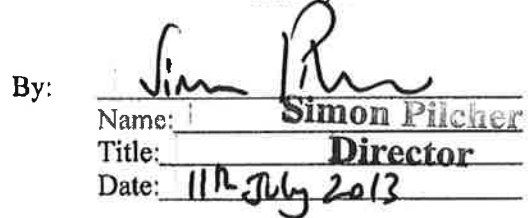 By: Simon Pilcher
Name: Simon Pilcher
Title: Director
Date: 11th July 2013